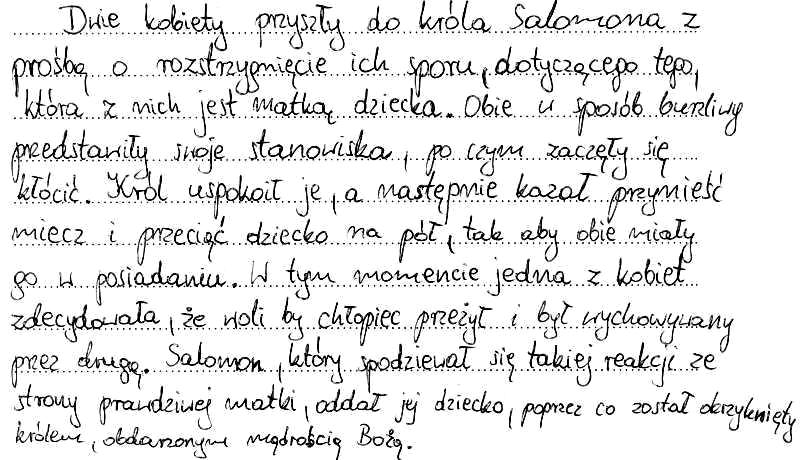 Dwie kobiety przyszły do króla Salomona z
prośbą o rozstrzygnięcie ich sporu, dotyczącego tego,
która z nich jest matką dziecka. Obie w sposób burzliwy
przedstawiły swoje stanowiska, po czym zaczęły się
kłócić. Król uspokoił je, a następnie kazał przynieść
miecz i przeciąć dziecko na pół, tak aby obie miały
go w posiadaniu. W tym momencie jedna z kobiet
zdecydowała, że woli by chłopiec przeżył i był wychowywany
przez drugą. Salomon, który spodziewał się takiej reakcji ze
strony prawdziwej matki, oddał jej dziecko, poprzez co został okrzyknięty
królem, obdarzonym mądrością Bożą.